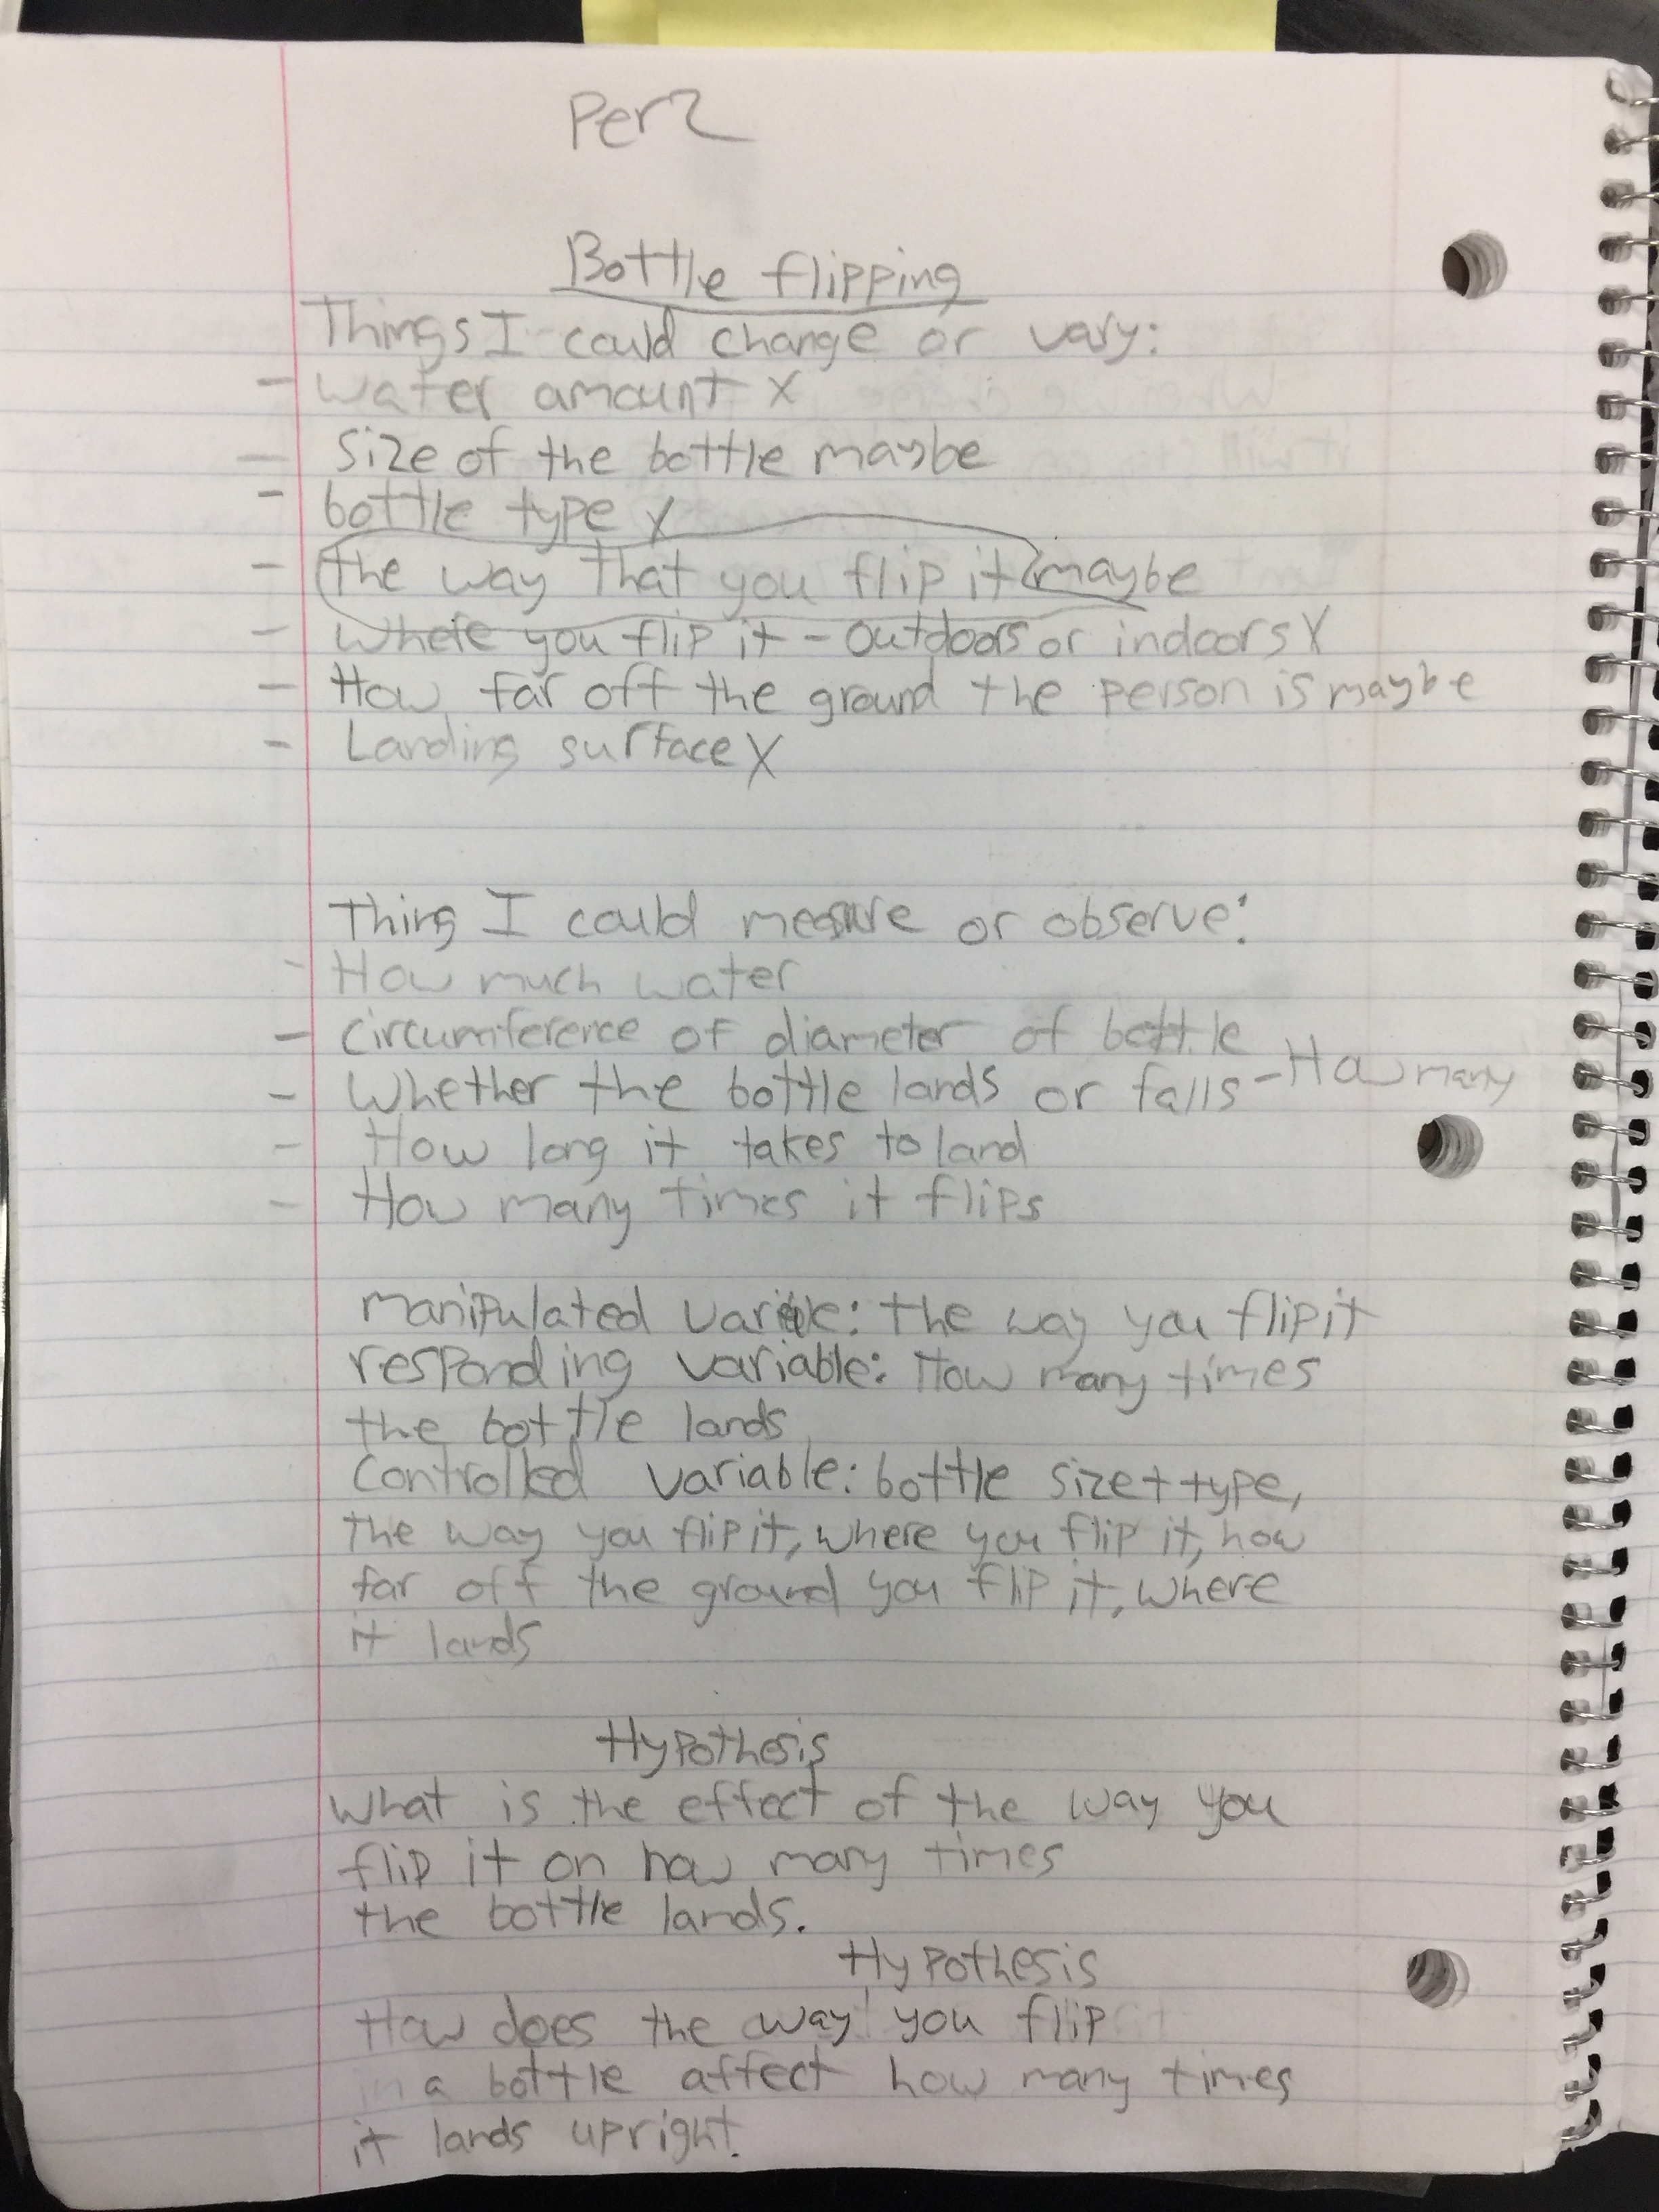 Per 2
Bottle flipping
Things I could change or vary:
- water amount X
- size of the bottle maybe
- bottle type X
- the way that you flip it maybe
- Where you flip it - outdoors or indoors X
- How far off the ground the person is maybe
- Landing surface X
Thing I could measure or observe:
- How much water
- circumference of diameter of bottle
- Whether the bottle lands or falls - How many
- How long it takes to land
- How many times it flips
manipulated variable: the way you flip it
responding variable: How many times
the bottle lands
Controlled variable: bottle size + type,
the way you flip it, where you flip it, how
far off the ground you flip it, where
it lands
Hypothesis
What is the effect of the way you
flip it on how many times
the bottle lands.
Hypothesis
How does the way you flip
a bottle affect how many times
it lands upright.